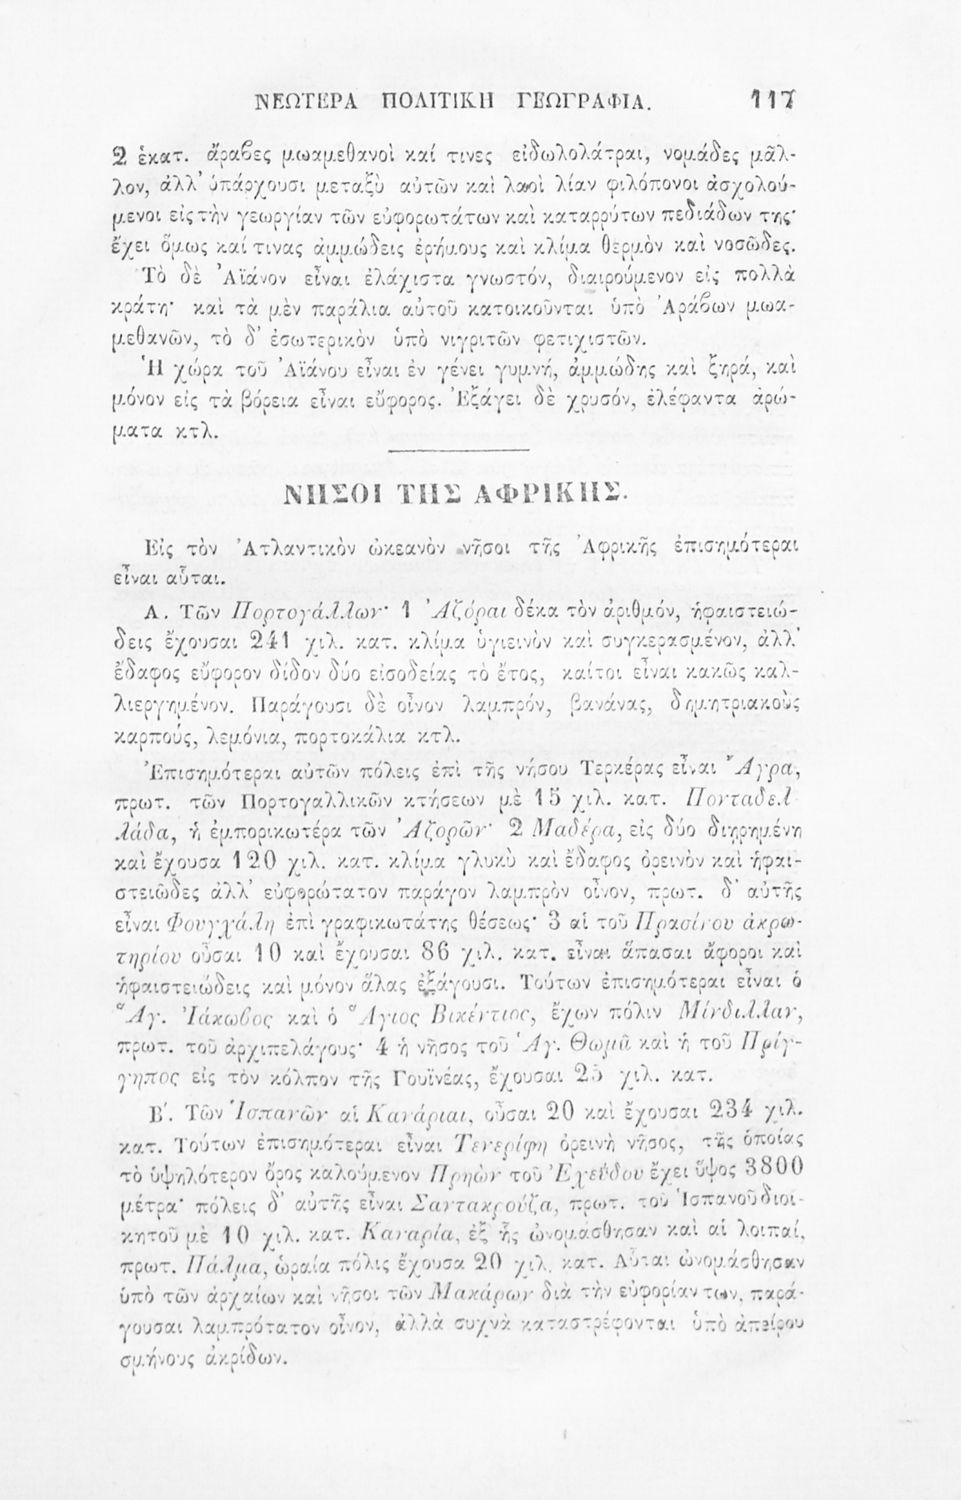 ΝΕΩΤΕΡΑ ΠΟΛΙΤΙΚΗ ΓΕΩΓΡΑΦΙΑ. 117
2 ἑκατ. ἄραβες μωαμεθανοὶ καί τινες εἰδωλολάτραι, νομάδες μᾶλ-
λον, ἀλλ' ὑπάρχουσι μεταξὺ αὐτῶν καὶ λαοὶ λίαν φιλόπονοι ἀσχολού-
μενοι εἰς τὴν γεωργίαν τῶν εὐφορωτάτων καὶ καταρρύτων πεδιάδων της·
ἔχει ὅμως καί τινας ἀμμώδεις ἐρήμους καὶ κλίμα θερμὸν καὶ νοσῶδες.
Τὸ δὲ Ἀϊάνον εἶναι ἐλάχιστα γνωστόν, διαιρούμενον εἰς πολλὰ
κράτη· καὶ τὰ μὲν παράλια αὐτοῦ κατοικοῦνται ὑπὸ Ἀράβων μωα-
μεθανῶν, τὸ δ' ἐσωτερικὸν ὑπὸ νιγριτῶν φετιχιστῶν.
Ἡ χώρα τοῦ Ἀϊάνου εἶναι ἐν γένει γυμνή, ἀμμώδης καὶ ξηρά, καὶ
μόνον εἰς τὰ βόρεια εἶναι εὔφορος. Ἐξάγει δὲ χρυσόν, ἐλέφαντα ἀρώ-
ματα κτλ.
ΝΗΣΟΙ ΤΗΣ ΑΦΡΙΚΗΣ.
Εἰς τὸν Ἀτλαντικὸν ὠκεανὸν νῆσοι τῆς Ἀφρικῆς ἐπισημότεραι
εἶναι αὗται.
Α. Τῶν Πορτογάλλων· 1 Ἀζόραι δέκα τὸν ἀριθμόν, ἡφαιστειώ-
δεις ἔχουσαι 241 χιλ. κατ. κλίμα ὑγιεινὸν καὶ συγκερασμένον, ἀλλ'
ἔδαφος εὔφορον δίδον δύο εἰσοδείας τὸ ἔτος, καίτοι εἶναι κακῶς καλ-
λιεργημένον. Παράγουσι δὲ οἶνον λαμπρόν, βανάνας, δημητριακοὺς
καρπούς, λεμόνια, πορτοκάλια κτλ.
Ἐπισημότεραι αὐτῶν πόλεις ἐπὶ τῆς νήσου Τερκέρας εἶναι Ἄγρα,
πρωτ. τῶν Πορτογαλλικῶν κτήσεων μὲ 15 χιλ. κατ. Πονταδελ
λάδα, ἡ ἐμπορικωτέρα τῶν Ἀζορῶν· 2 Μαδέρα, εἰς δύο διῃρημένη
καὶ ἔχουσα 120 χιλ. κατ. κλίμα γλυκὺ καὶ ἔδαφος ὀρεινὸν καὶ ἡφαι-
στειῶδες ἀλλ' εὐφορώτατον παράγον λαμπρὸν οἶνον, πρωτ. δ' αὐτῆς
εἶναι Φουγχάλη ἐπὶ γραφικωτάτης θέσεως· 3 αἱ τοῦ Πρασίνου ἀκρω-
τηρίου οὖσαι 10 καὶ ἔχουσαι 86 χιλ. κατ. εἶναι ἅπασαι ἄφοροι καὶ
ἡφαιστειώδεις καὶ μόνον ἅλας ἐξάγουσι. Τούτων ἐπισημότεραι εἶναι ὁ
Ἅγ. Ἰάκωβος καὶ ὁ Ἅγιος Βικέντιος, ἔχων πόλιν Μίνδιλλαν,
πρωτ. τοῦ ἀρχιπελάγους· 4 ἡ νῆσος τοῦ Ἁγ. Θωμᾶ καὶ ἡ τοῦ Πρίγ-
γηπος εἰς τὸν κόλπον τῆς Γουϊνέας, ἔχουσαι 25 χιλ. κατ.
Β'. Τῶν Ἰσπανῶν αἱ Κανάριαι, οὖσαι 20 καὶ ἔχουσαι 234 χιλ.
κατ. Τούτων ἐπισημότεραι εἶναι Τενερίφη ὀρεινὴ νῆσος, τῆς ὁποίας
τὸ ὑψηλότερον ὄρος καλούμενον Πρηὼν τοῦ Ἐχεΰδου ἔχει ὕψος 3800
μέτρα· πόλεις δ' αὐτῆς εἶναι Σαντακρούζα, πρωτ. τοῦ Ἰσπανοῦ διοι-
κητοῦ μὲ 10 χιλ. κατ. Καναρία, ἐξ ἧς ὠνομάσθησαν καὶ αἱ λοιπαί,
πρωτ. Πάλμα, ὡραία πόλις ἔχουσα 20 χιλ. κατ. Αὗται ὠνομάσθησαν
ὑπὸ τῶν ἀρχαίων καὶ νῆσοι τῶν Μακάρων διὰ τὴν εὐφορίαν των, παρά-
γουσαι λαμπρότατον οἶνον, ἀλλὰ συχνὰ καταστρέφονται ὑπὸ ἀπείρου
σμήνους ἀκρίδων.